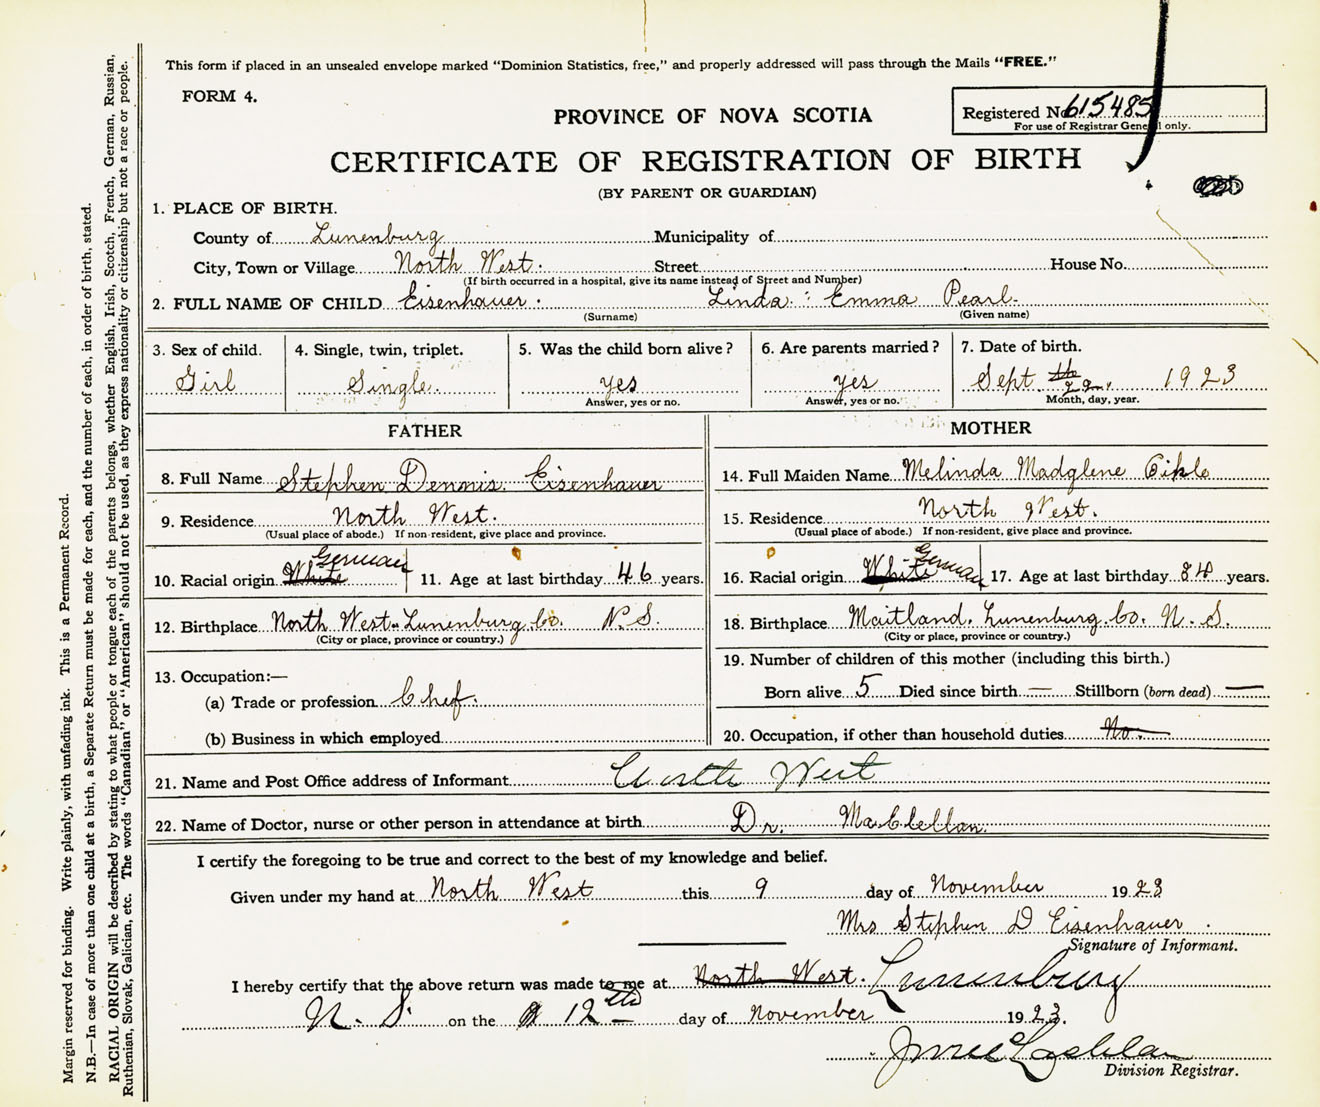 This form if placed in an unsealed envelope marked "Dominion Statistics, free," and properly addressed will pass through the Mails "FREE."
FORM 4.
PROVINCE OF NOVA SCOTIA
Registered No. 615485
For use of Registrar General only.
CERTIFICATE OF REGISTRATION OF BIRTH
(BY PARENT OR GUARDIAN)
1. PLACE OF BIRTH.
County of Lunenburg Municipality of
City, Town or Village North West. Street House No.
(If birth occurred in a hospital, give its name instead of Street and Number)
2. FULL NAME OF CHILD Eisenhauer. Linda Emma Pearl.
(Surname) (Given name)
3. Sex of child. 4. Single, twin, triplet. 5. Was the child born alive? 6. Are parents married? 7. Date of birth.
Girl Single. yes yes Sept 1923
Answer, yes or no. Answer, yes or no. Month, day, year.
FATHER
8. Full Name Stephen Dennis Eisenhauer
9. Residence North West.
(Usual place of abode.) If non-resident, give place and province.
10. Racial origin White German 11. Age at last birthday 46 years.
12. Birthplace North West. Lunenburg Co. N.S.
(City or place, province or country.)
13. Occupation:—
(a) Trade or profession Chef.
(b) Business in which employed
MOTHER
14. Full Maiden Name Melinda Madglene
15. Residence North West.
(Usual place of abode.) If non-resident, give place and province.
16. Racial origin White German 17. Age at last birthday years.
18. Birthplace Maitland. Lunenburg Co. N.S.
(City or place, province or country.)
19. Number of children of this mother (including this birth.)
Born alive 5 Died since birth — Stillborn (born dead) —
20. Occupation, if other than household duties No.
21. Name and Post Office address of Informant North West
22. Name of Doctor, nurse or other person in attendance at birth Dr. MacClellan.
I certify the foregoing to be true and correct to the best of my knowledge and belief.
Given under my hand at North West this 9 day of November 1923
Mrs Stephen D Eisenhauer.
Signature of Informant.
I hereby certify that the above return was made to me at North West. Lunenburg
N. S. on the 12th day of November 1923.
Division Registrar.
Margin reserved for binding. Write plainly, with unfading ink. This is a Permanent Record.
N.B.—In case of more than one child at a birth, a Separate Return must be made for each, and the number of each, in order of birth, stated.
RACIAL ORIGIN will be described by stating to what people or tongue each of the parents belongs, whether English, Irish, Scotch, French, German, Russian,
Ruthenian, Slovak, Galician, etc. The words "Canadian" or "American" should not be used, as they express nationality or citizenship but not a race or people.